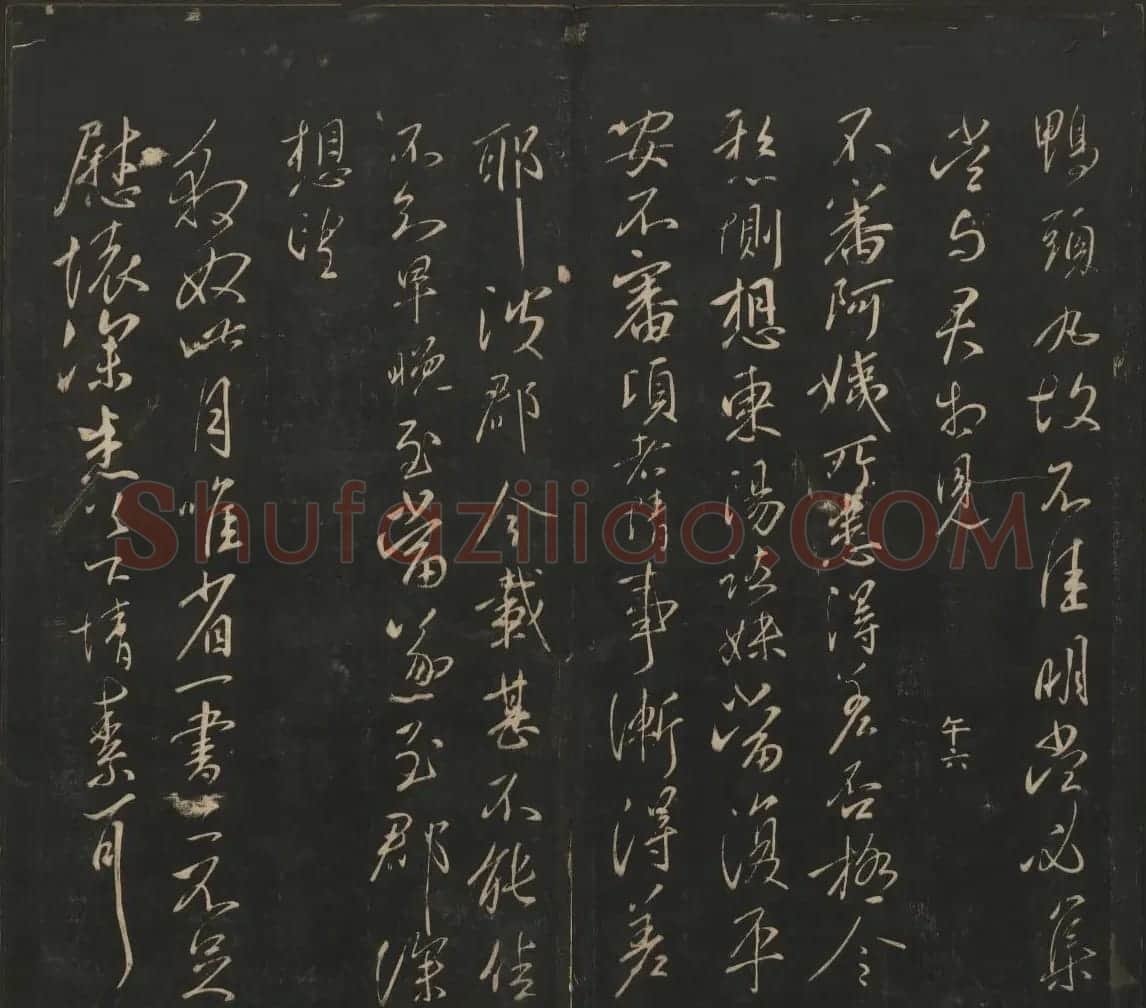 鴨頭丸故不佳明當必集
當與君相見
午六
不審阿姨所患得差否極令
愁惻想東陽諸妹當復平
安不審頃者情事漸得差
耶 彼郡今載甚不能佳
不知早晚至當遂至郡深
想望
敬奴此月唯省一書亦不足
慰懷深悉足下情素耳
Shufaziliao.COM